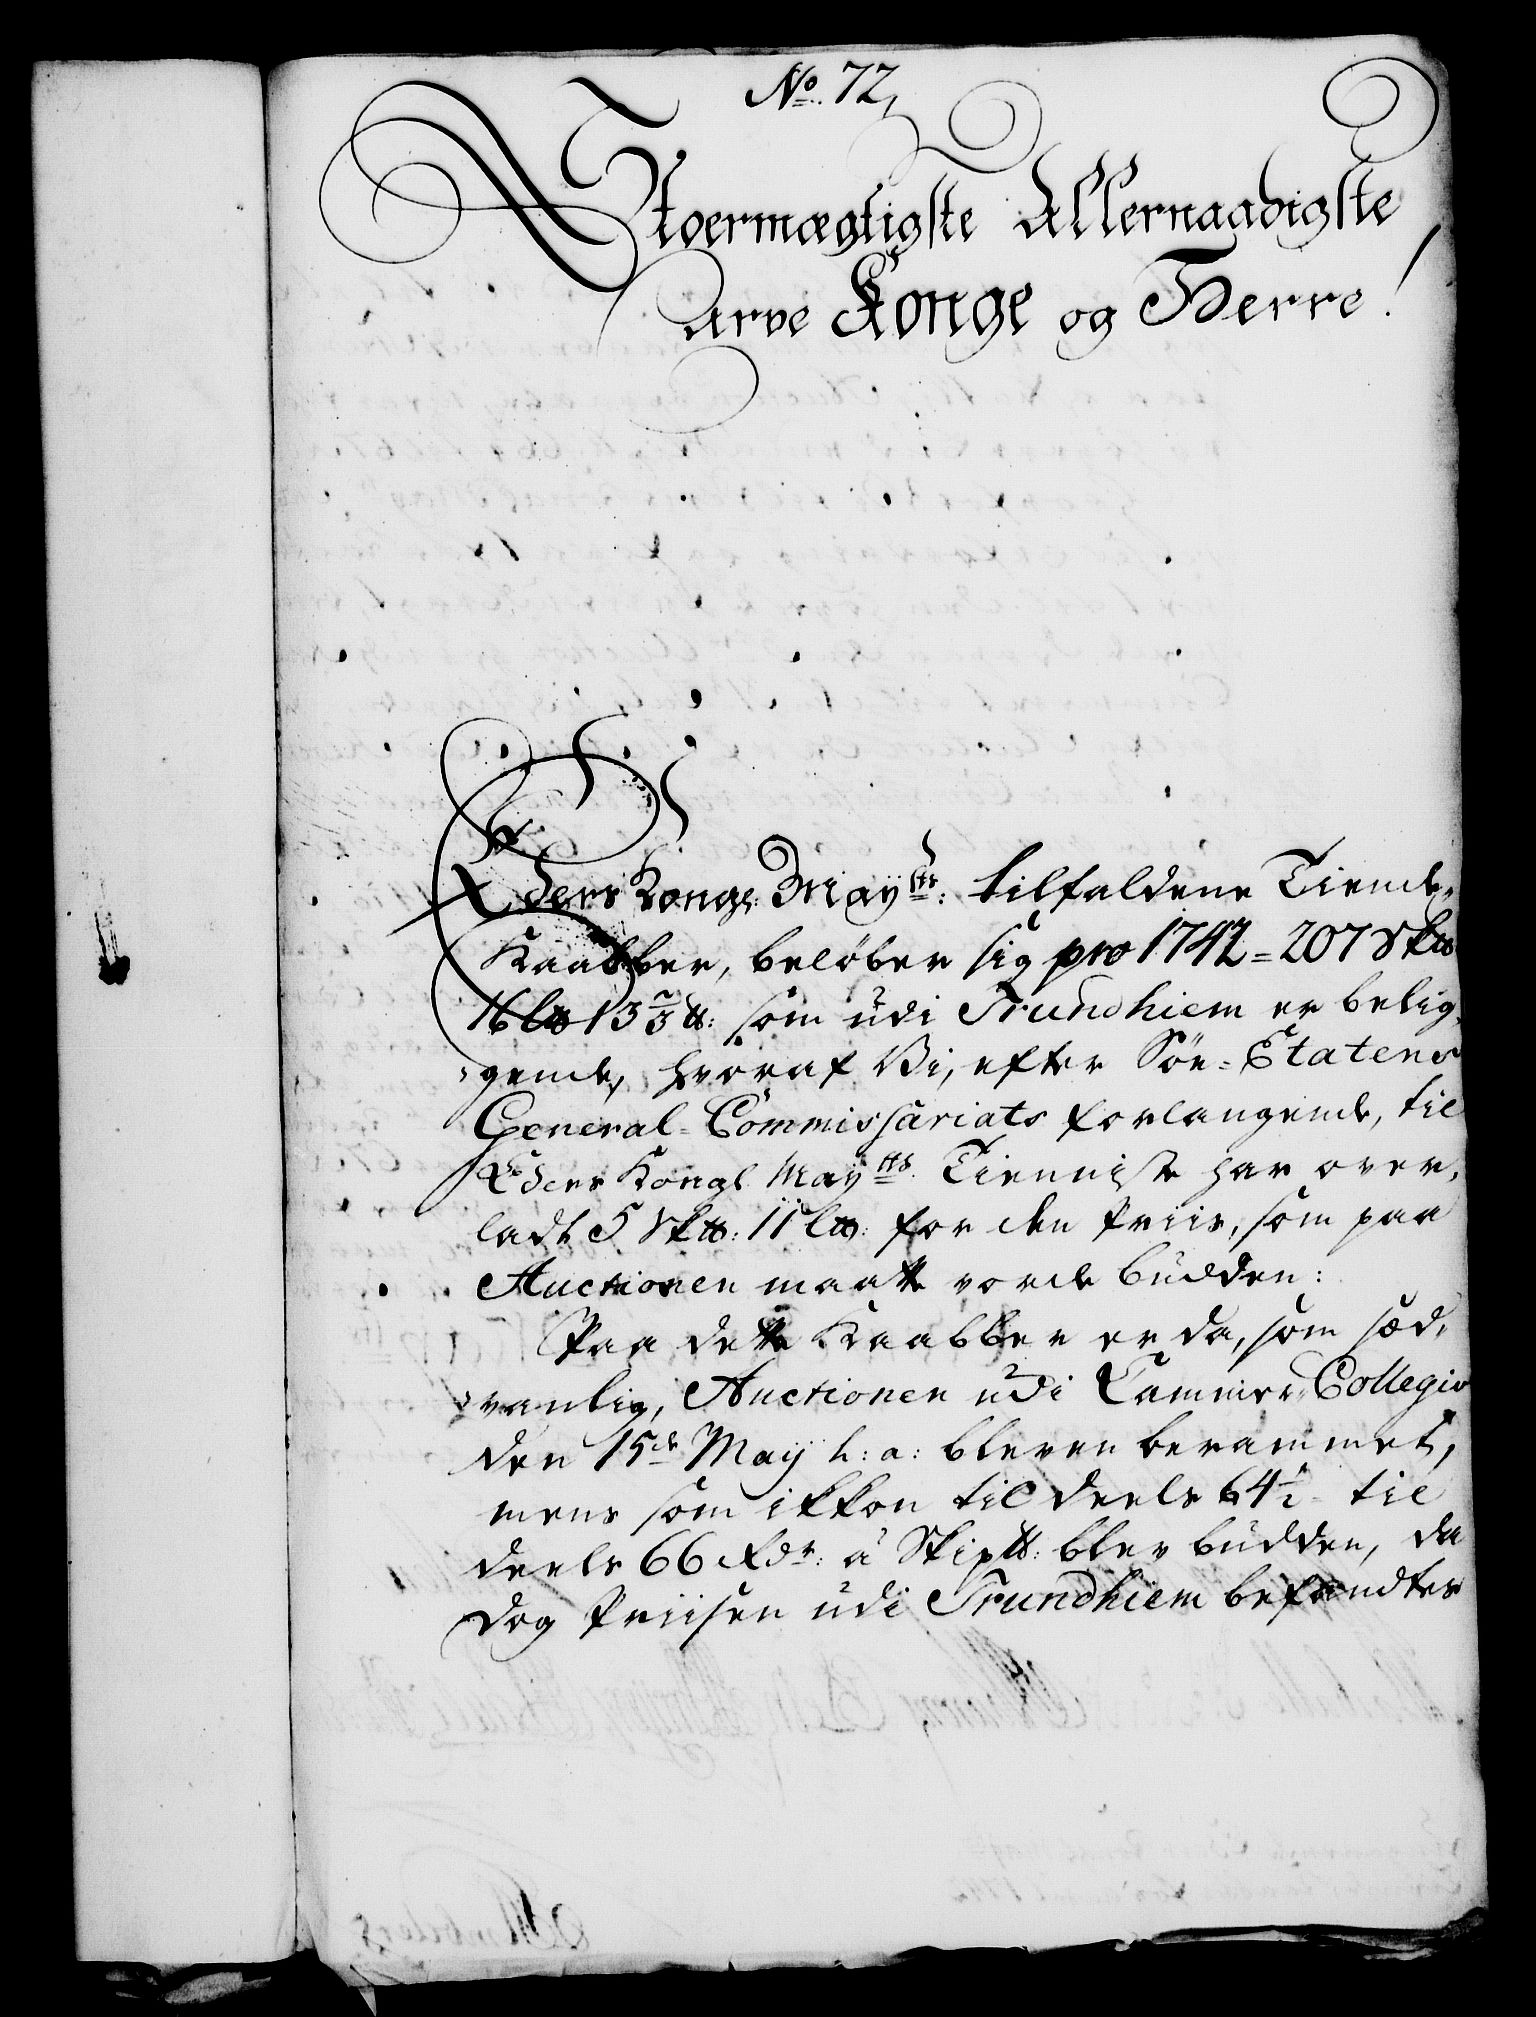 No. 72,
Stoermægtigste Allernaadigste
Arve Konge og Herre!
Eders Kongl. Mayts: tilfaldene Tiende-
Kaabber, beløber sig pro 1742 = 207 Sk℔
16 L℔ 13⅔ ℔: som udi Trundhiem er belig-
gende, hvoraf Vi, efter Söe-Etatens
General-Commissariats forlangende, til
Eders Kongl. Mayts. Tienniste har over-
ladt 5 Sk℔: 11 L℔: for den Priis, som paa
Auctionen maatte vorde budden:
Paa dette Kaabber er da, som sæd-
vanlig, Auctionen udi Cammer-Collegio
den 15de May h: a: bleven berammet,
mens som ikkon til deels 64½ til
deels 66 Rdr: à Skip℔: blev budden, da
dog Priisen udi Trundhiem befandtes